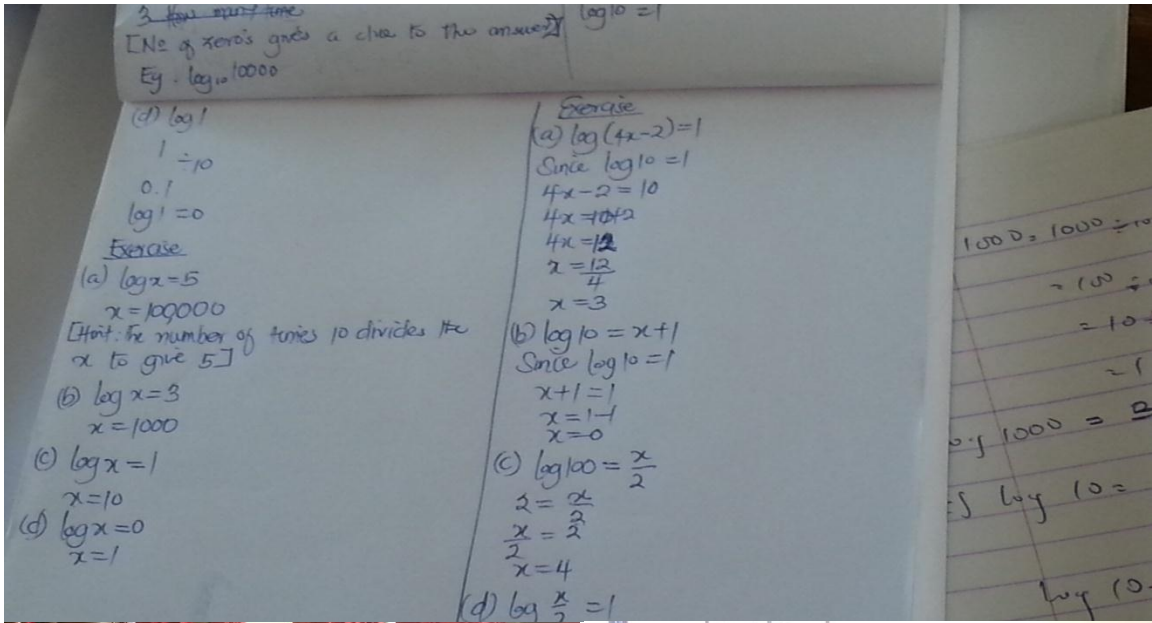 [No of zero's gives a clue to the answer]
Eg. log₁₀10000
log10 = 1
(d) log 1
1 ÷10
0.1
log 1 = 0
Exercise
(a) log x = 5
x = 100,000
[Hint: The number of times 10 divides the
x to give 5]
(b) log x = 3
x = 1000
(c) log x = 1
x = 10
(d) log x = 0
x = 1
Exercise
(a) log (4x-2) = 1
Since log 10 = 1
4x - 2 = 10
4x = 10+2
4x = 12
x = 12/4
x = 3
(b) log 10 = x+1
Since log 10 = 1
x+1 = 1
x = 1-1
x = 0
(c) log 100 = x/2
2 = x/2
x/2 = 2
x = 4
(d) log x/2 = 1
1000 = 1000 ÷10
= 100 ÷
= 10
= 1
log 1000 =
log 10 =
log 10